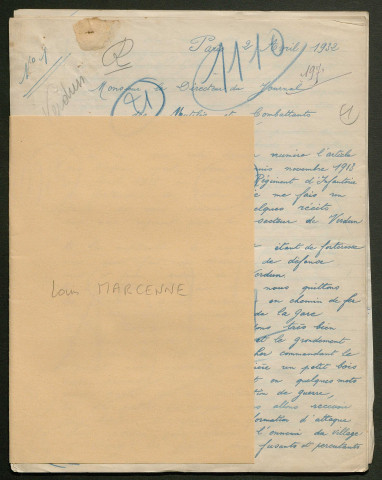 N° 4
R
Paris 2 Avril 1932
1110
197
Verdun
Monsieur le Directeur du Journal
21
et Combattants
numéro l'article
novembre 1913
Régiment d'Infanterie
ne fais un
quelques récits
secteur de Verdun
étant de forteresse
de défense
Verdun
nous quittons
en chemin de fer
de la Gare
très bien
et le grondement
commandant le
un petit bois
et en quelques mots
de guerre,
allons recevoir
formation d'attaque
l'ennemi du village
fusants et percutants
Louis MARCENNE